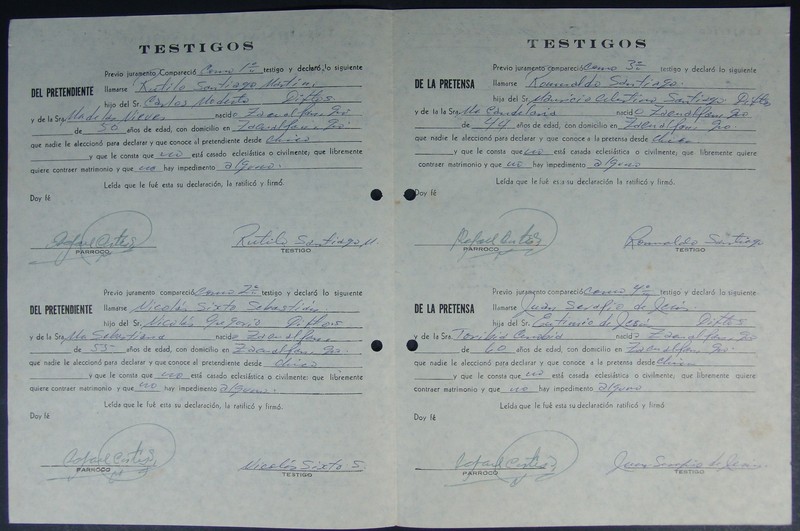 TESTIGOS
Previo juramento compareció Como 1º testigo y declaró lo siguiente
DEL PRETENDIENTE llamarse Rutilo Santiago Martín
hijo del Sr. Carlos Modesto
y de la Sra. Nieves nació
de 50 años de edad, con domicilio en
que nadie le aleccionó para declarar y que conoce al pretendiente desde Chico
y que le consta que no está casado eclesiástica o civilmente; que libremente quiere
contraer matrimonio y que no hay impedimento alguno.
Leída que le fué esta su declaración, la ratificó y firmó.
Doy fé
Rafael Cortés Rutilo Santiago M.
PARROCO TESTIGO
Previo juramento compareció como 2º testigo y declaró lo siguiente
DEL PRETENDIENTE llamarse Nicolás Sixto Sebastián
hijo del Sr. Nicolás Gregorio
y de la Sra. Ma Sebastiana nació
de 53 años de edad, con domicilio en
que nadie le aleccionó para declarar y que conoce al pretendiente desde Chico
y que le consta que no está casado eclesiástica o civilmente; que libremente
quiere contraer matrimonio y que no hay impedimento alguno.
Leída que le fué esta su declaración, la ratificó y firmó.
Doy fé
Rafael Cortés Nicolás Sixto S.
PARROCO TESTIGO
TESTIGOS
Previo juramento compareció Como 3º testigo y declaró lo siguiente
DE LA PRETENSA llamarse Romualdo Santiago.
hijo del Sr. Mauricio Celestino Santiago
y de la Sra. Ma Candelaria nació
de 44 años de edad, con domicilio en
que nadie le aleccionó para declarar y que conoce a la pretensa desde Chica
y que le consta que no está casada eclesiástica o civilmente; que libremente quiere
contraer matrimonio y que no hay impedimento alguno.
Leída que le fué esta su declaración, la ratificó y firmó.
Doy fé
Rafael Cortés Romualdo Santiago
PARROCO TESTIGO
Previo juramento compareció como 4º testigo y declaró lo siguiente
DE LA PRETENSA llamarse Juan Serafio de Jesús
hijo del Sr. Eutimio de Jesús
y de la Sra. Toribia nació
de 60 años de edad, con domicilio en
que nadie le aleccionó para declarar y que conoce a la pretensa desde Chica
y que le consta que no está casada eclesiástica o civilmente; que libremente quiere
contraer matrimonio y que no hay impedimento alguno
Leída que le fué esta su declaración, la ratificó y firmó.
Doy fé
Rafael Cortés Juan Serafio de Jesús
PARROCO TESTIGO